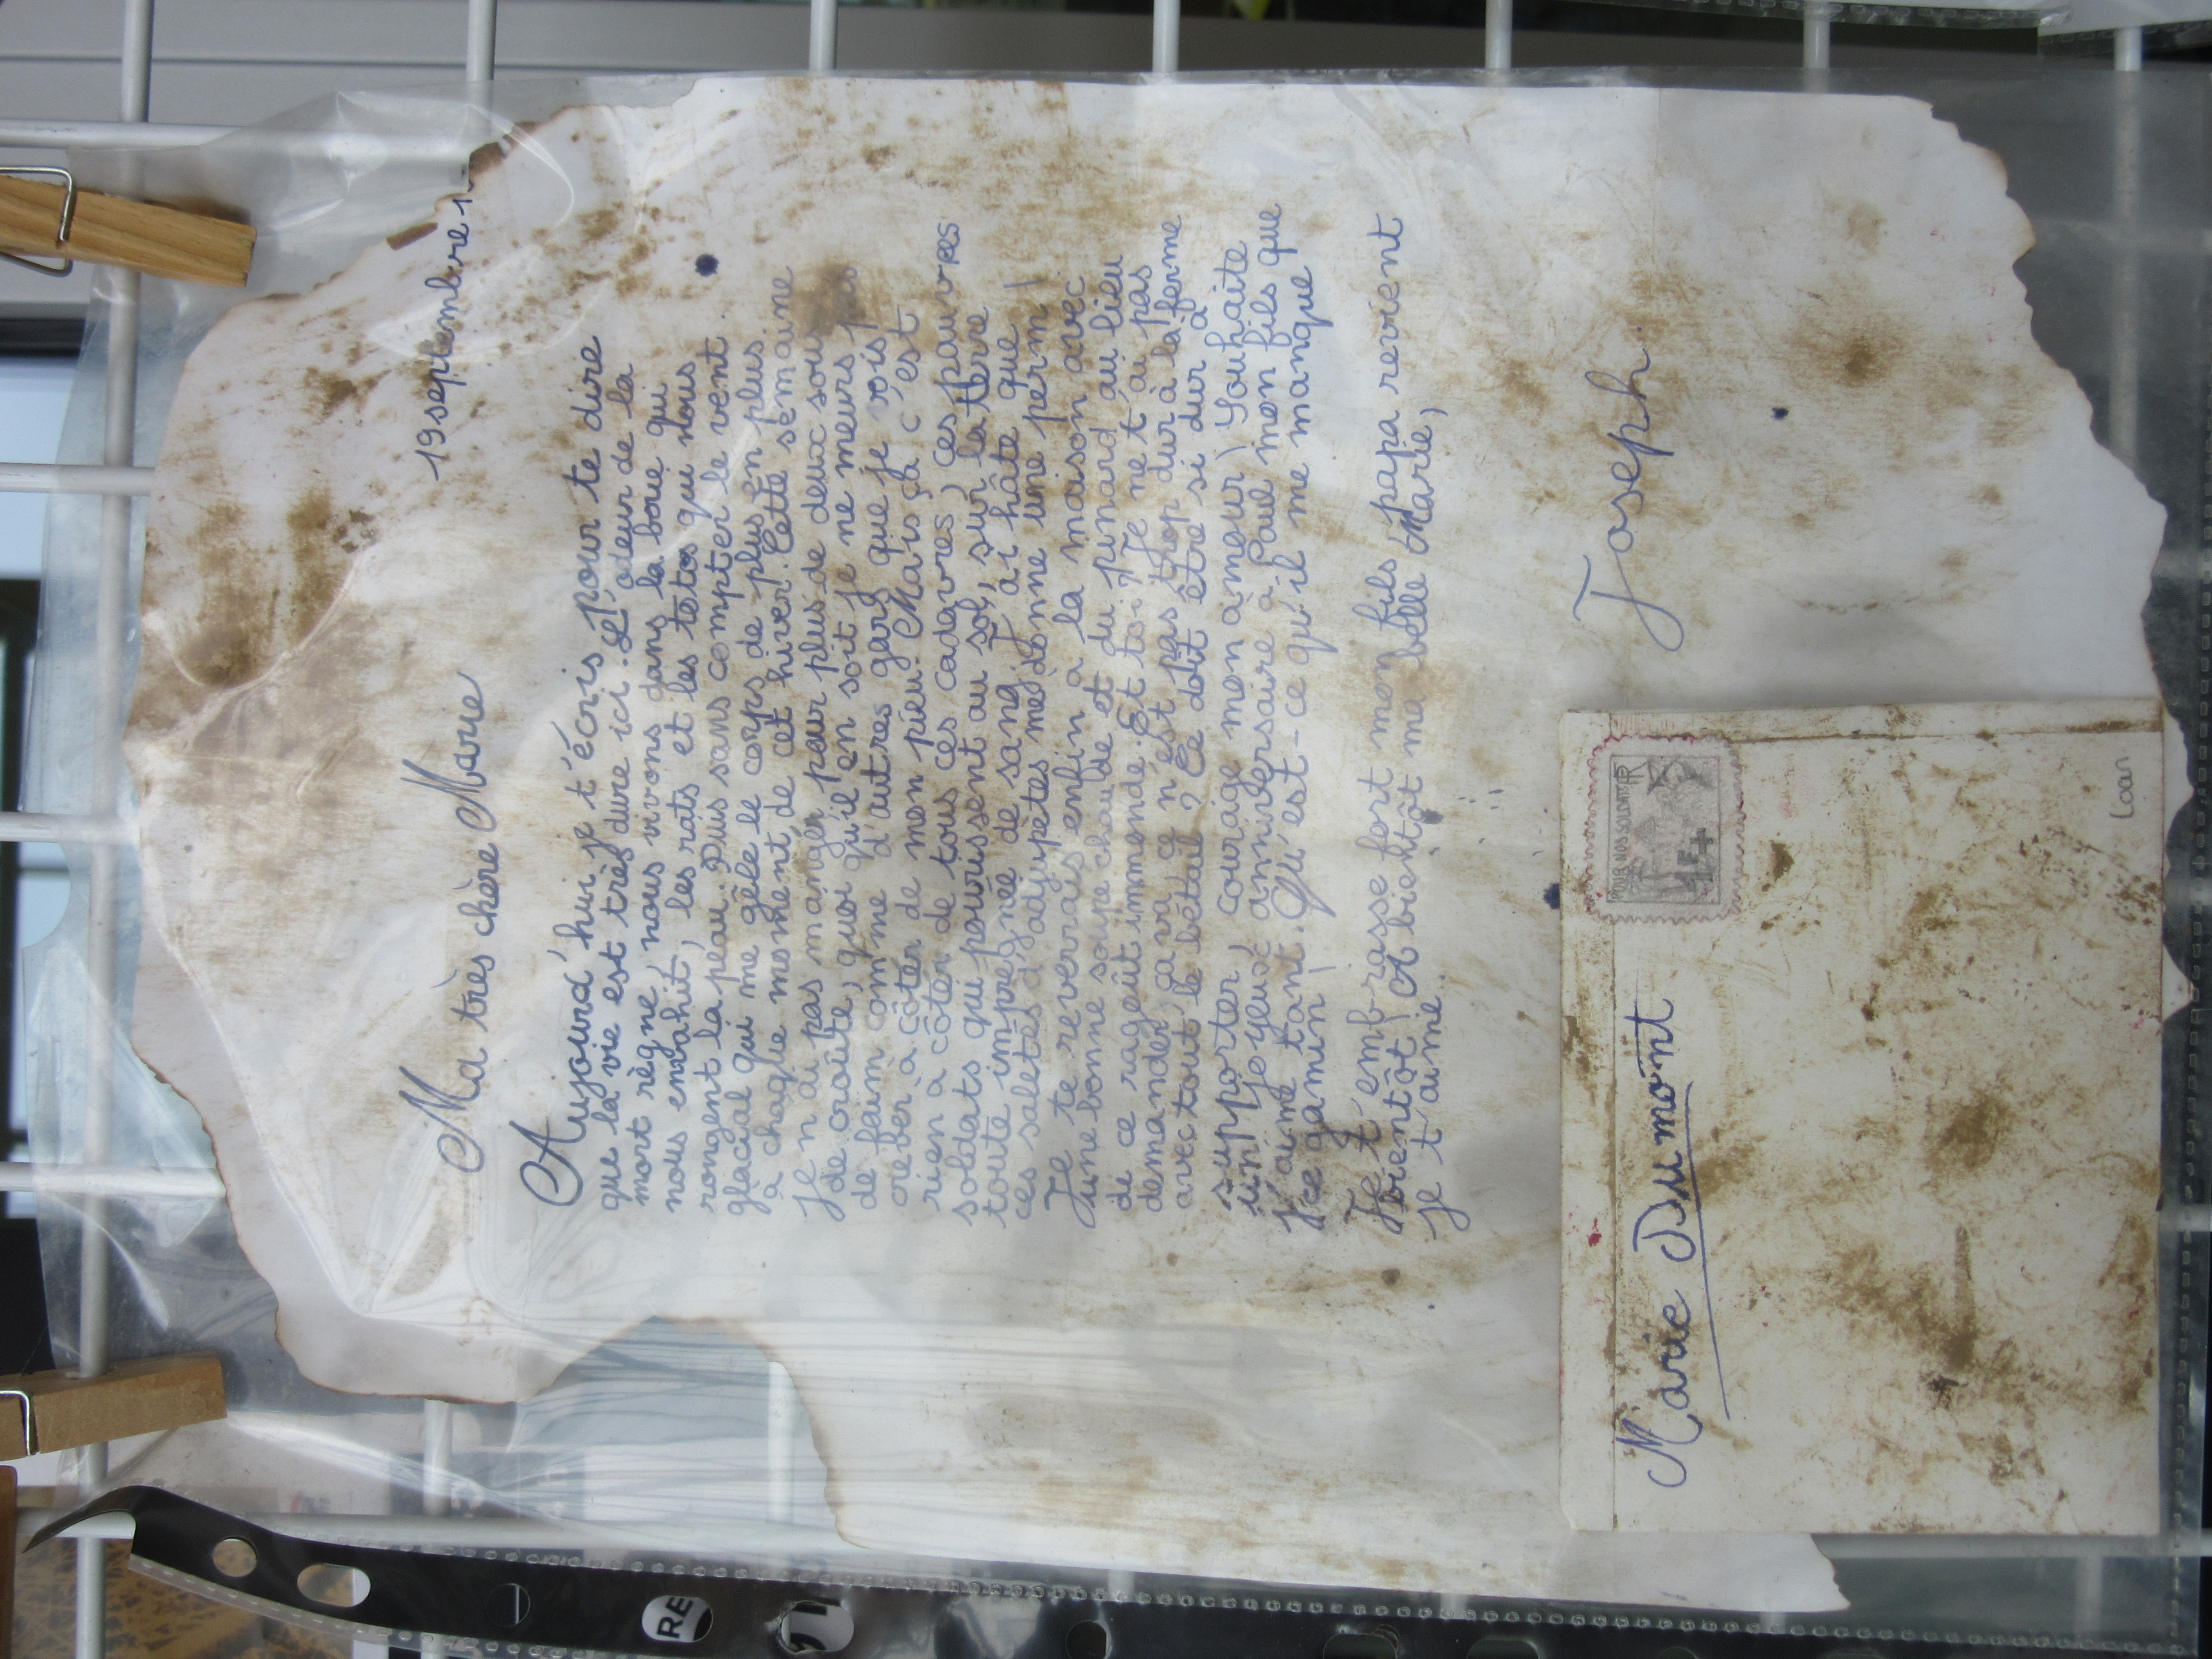 19 septembre 1
Ma très chère Marie
Aujourd'hui, je t'écris pour te dire
que la vie est très dure ici. L'odeur de la
mort règne, nous vivons dans la boue qui
nous envahit, les rats et les totos qui nous
rongent la peau. Puis sans compter le vent
glacial qui me gèle le corps de plus en plus
à chaque moment de cet hiver. Cette semaine
je n'ai pas manger pour plus de deux sou
de croûte, quoi qu'il en soit je ne meurs pas
de faim comme d'autres gars que je vois
creber à côter de mon pieu. Mais ça c'est
rien à côter de tous ces cadavres, ces pauvres
soldats qui pourissent au sol, sur la terre
toute imprégnée de sang. J'ai hâte que
ces saletés d'adjupètes me donne une perm !
Je te reverrais enfin à la maison avec
une bonne soupe chaude et du pinard au lieu
de ce rageût immonde. Et toi ? Je ne t'ai pas
demander, ça va, ce n'est pas trop dur à la ferme
avec tout le bétail ? Ce doit être si dur à
supporter, couraige mon amour ! Souhaite
un joyeux anniversaire à Paul mon fils que
j'aime tant. Qu'est-ce qu'il me manque
ce gamin !
Je t'embrasse fort mon fils, papa revient
bientôt ! A bientôt ma belle Marie,
je t'aime.
Joseph.
POUR NOS SOLDATS
RF
1F+
Marie Dumont
Loan
RE